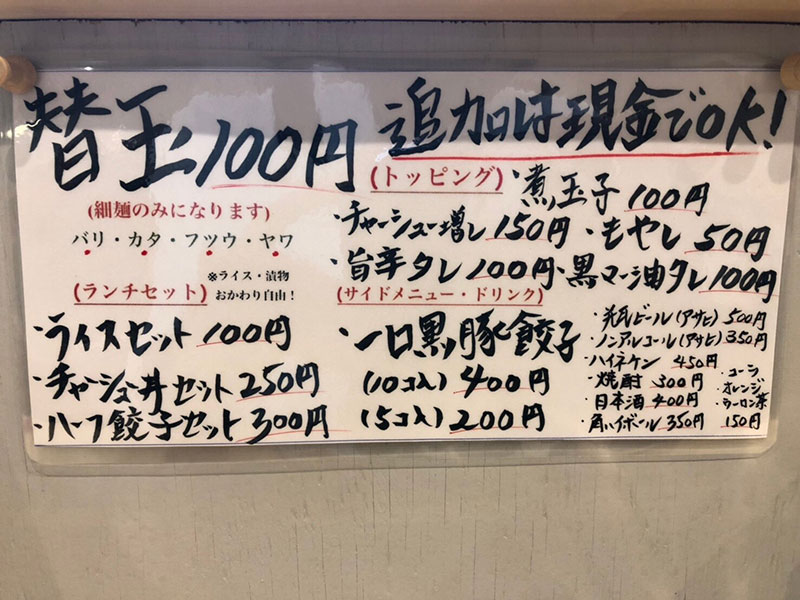 替玉100円
追加は現金でOK!
(細麺のみになります)
バリ・カタ・フツウ・ヤワ
(トッピング)
・煮玉子 100円
・チャーシュー増し 150円
・もやし 50円
・旨辛タレ 100円
・黒マー油タレ 100円
(ランチセット)
※ライス・漬物
おかわり自由！
・ライスセット 100円
・チャーシュー丼セット 250円
・ハーフ餃子セット 300円
(サイドメニュー・ドリンク)
・一口黒豚餃子
(10コ入) 400円
(5コ入) 200円
・瓶ビール(アサヒ) 500円
・ノンアルコール(アサヒ) 350円
・ハイネケン 450円
・焼酎 300円
・日本酒 400円
・角ハイボール 350円
・コーラ
・オレンジ
・ウーロン茶
150円